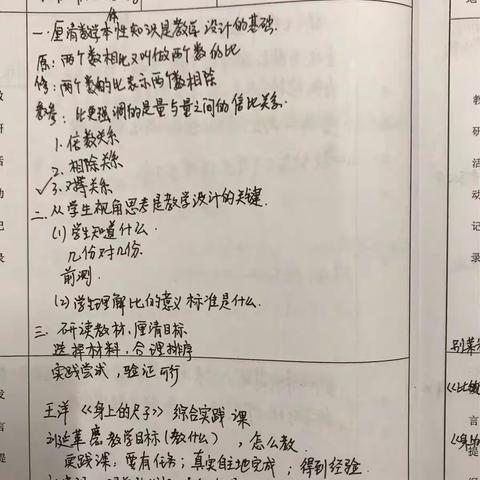 一.厘清数学本性知识是教学设计的基础.
原:两个数相比又叫做两个数的比
修:两个数的比表示两个数相除
教参:比更强调的是量与量之间的倍比关系.
1.倍数关系
2.相除关系
✓3.对等关系
二.从学生视角思考是教学设计的关键.
(1)学生知道什么.
几份对几份.
前测.
(2)学生理解比的意义标准是什么.
三.研读教材,厘清目标
选择材料,合理排序
实践尝试,验证可行
王洋《身上的尺子》综合实践课
教学目标(教什么),怎么教.
实践课:要有任务;真实自主地完成;得到经验.
教
研
活
动
记
录
发
言
提
研
活
动
记
录
言
提